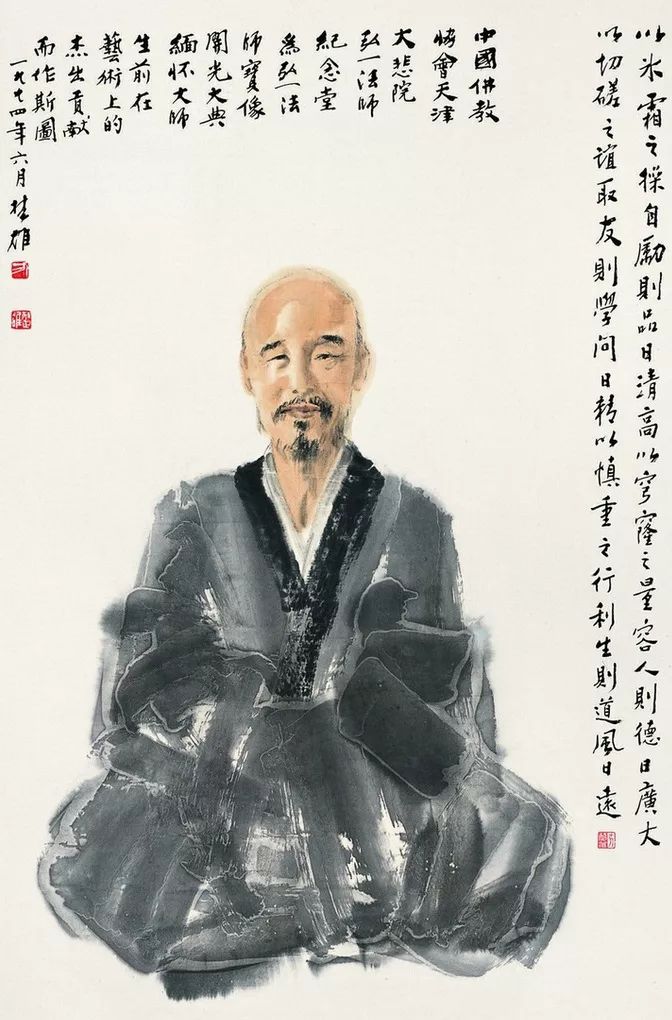 以氷霜之操自勵則品日清高以穹窿之量容人則德日廣大
以切磋之誼取友則學问日精以慎重之行利生則道風日遠
中國佛教
協會天津
大悲院
弘一法師
紀念堂
為弘一法
師寶像
開光大典
緬怀大師
生前在
藝術上的
杰出貢献
而作斯圖
一九九四年六月